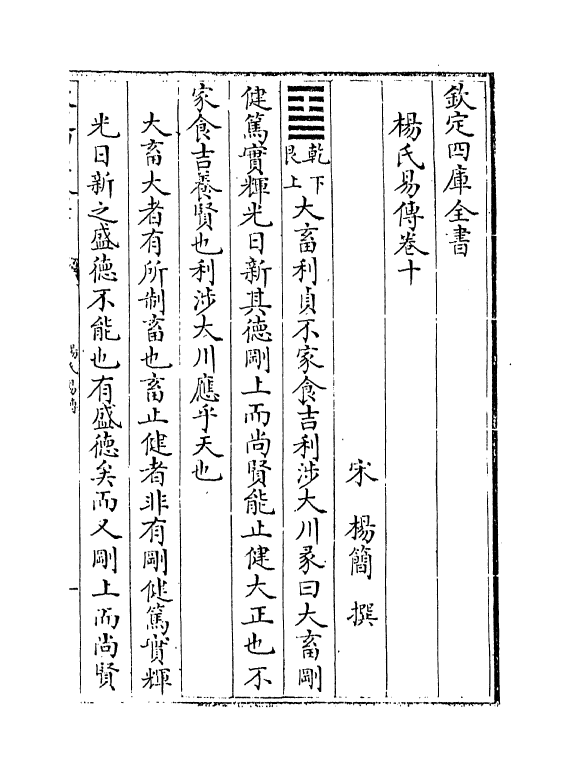 欽定四庫全書
楊氏易傳卷十
宋 楊簡 撰
䷙乾下艮上大畜利貞不家食吉利涉大川彖曰大畜剛
健篤實輝光日新其德剛上而尚賢能止健大正也不
家食吉養賢也利涉大川應乎天也
大畜大者有所制畜也畜止健者非有剛健篤實輝
光日新之盛德不能也有盛德矣而又剛上而尚賢
楊氏易傳
一